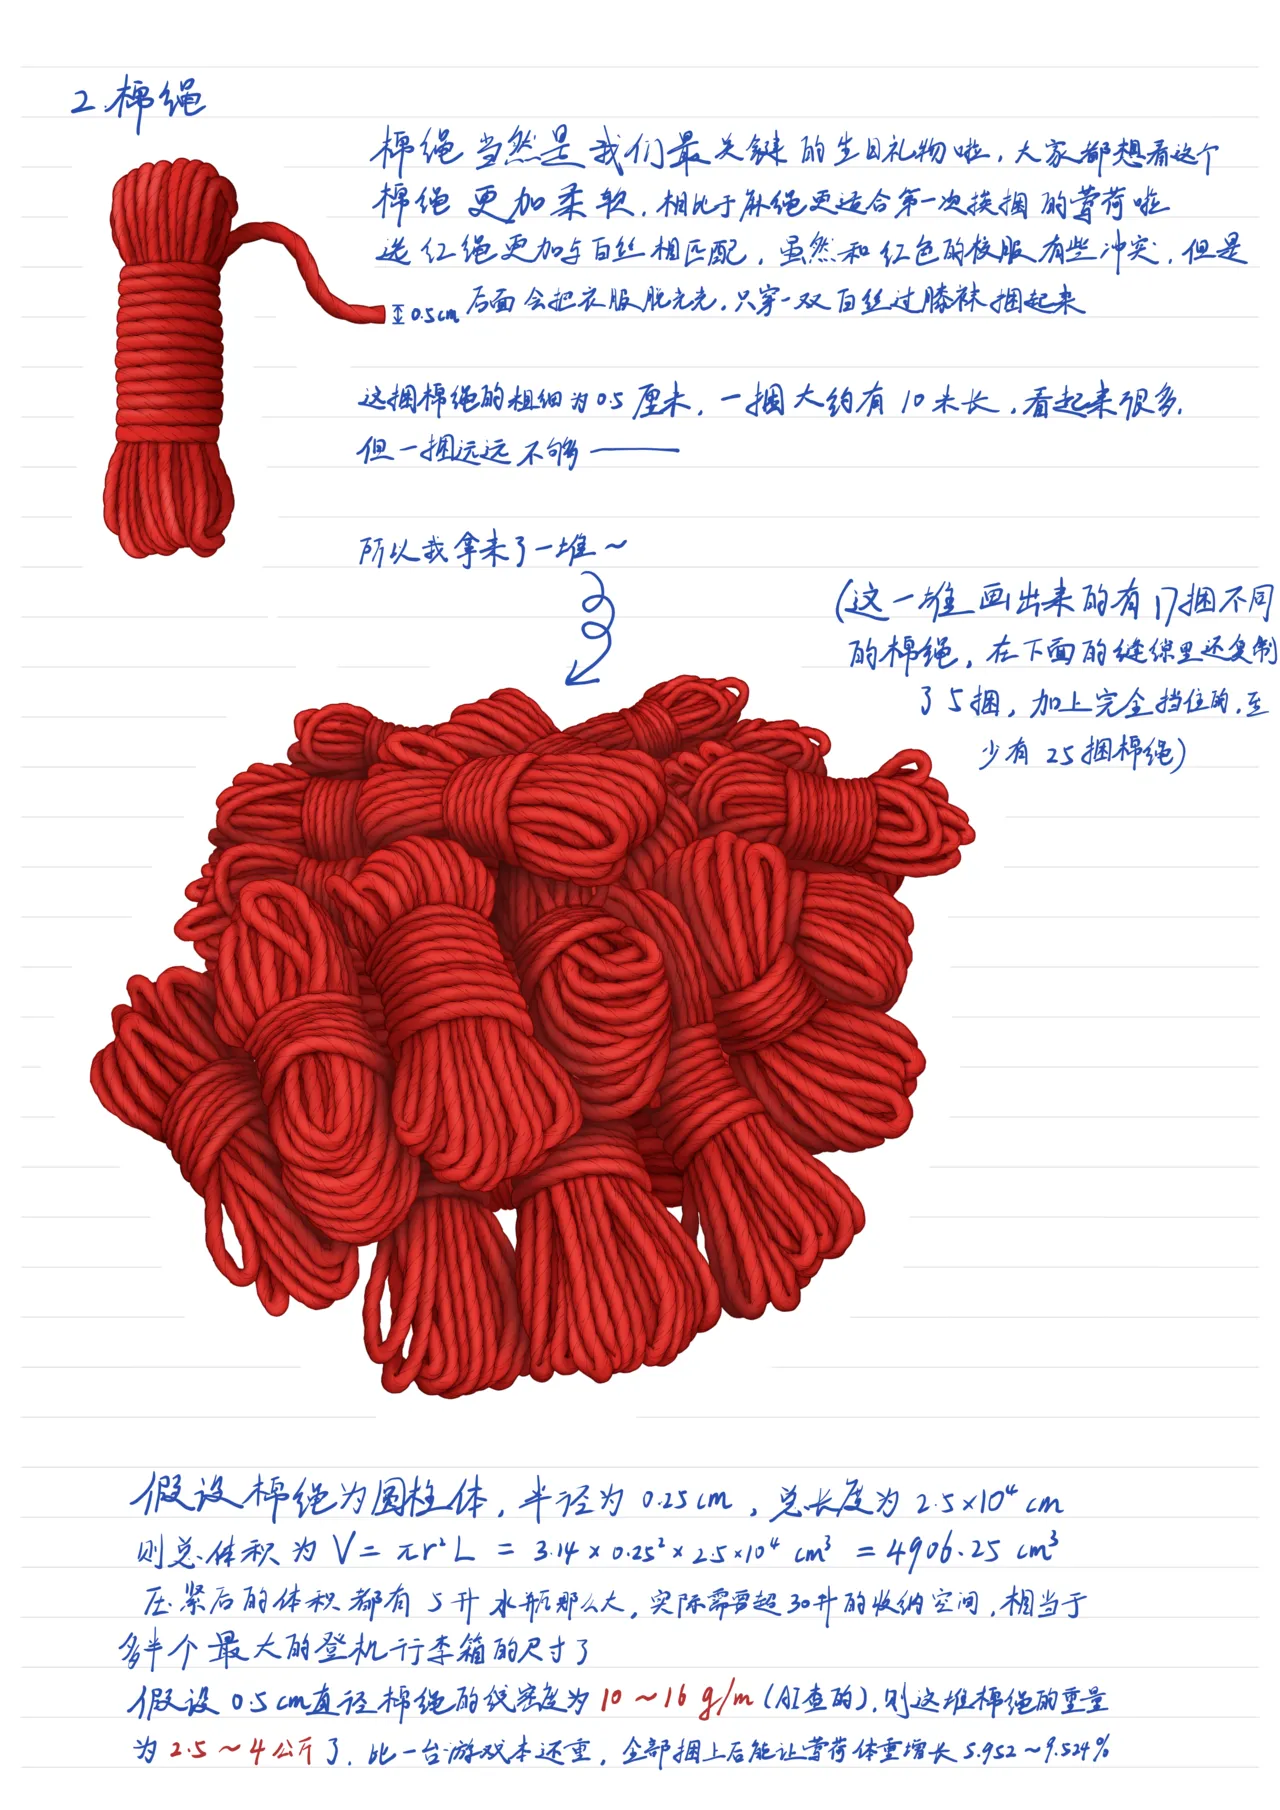 2.棉绳
棉绳当然是我们最关键的生日礼物啦，大家都想看这个
棉绳更加柔软，相比于麻绳更适合第一次挨捆的萱荷啦
选红绳更加与白丝相匹配，虽然和红色的校服有些冲突，但是
后面会把衣服脱光光，只穿一双白丝过膝袜捆起来
0.5cm
这捆棉绳的粗细为0.5厘米，一捆大约有10米长，看起来很多，
但一捆远远不够——
所以我拿来了一堆～
(这一堆画出来的有17捆不同
的棉绳，在下面的缝隙里还复制
了5捆，加上完全挡住的，至
少有25捆棉绳)
假设棉绳为圆柱体，半径为0.25cm，总长度为2.5×10⁴cm
则总体积为V=πr²L=3.14×0.25²×2.5×10⁴cm³=4906.25cm³
压紧后的体积都有5升水瓶那么大，实际需要超30升的收纳空间，相当于
多半个最大的登机行李箱的尺寸了
假设0.5cm直径棉绳的线密度为10～16g/m(AI查的)，则这堆棉绳的重量
为2.5～4公斤了，比一台游戏本还重，全部捆上后能让萱荷体重增长5.952～9.524%